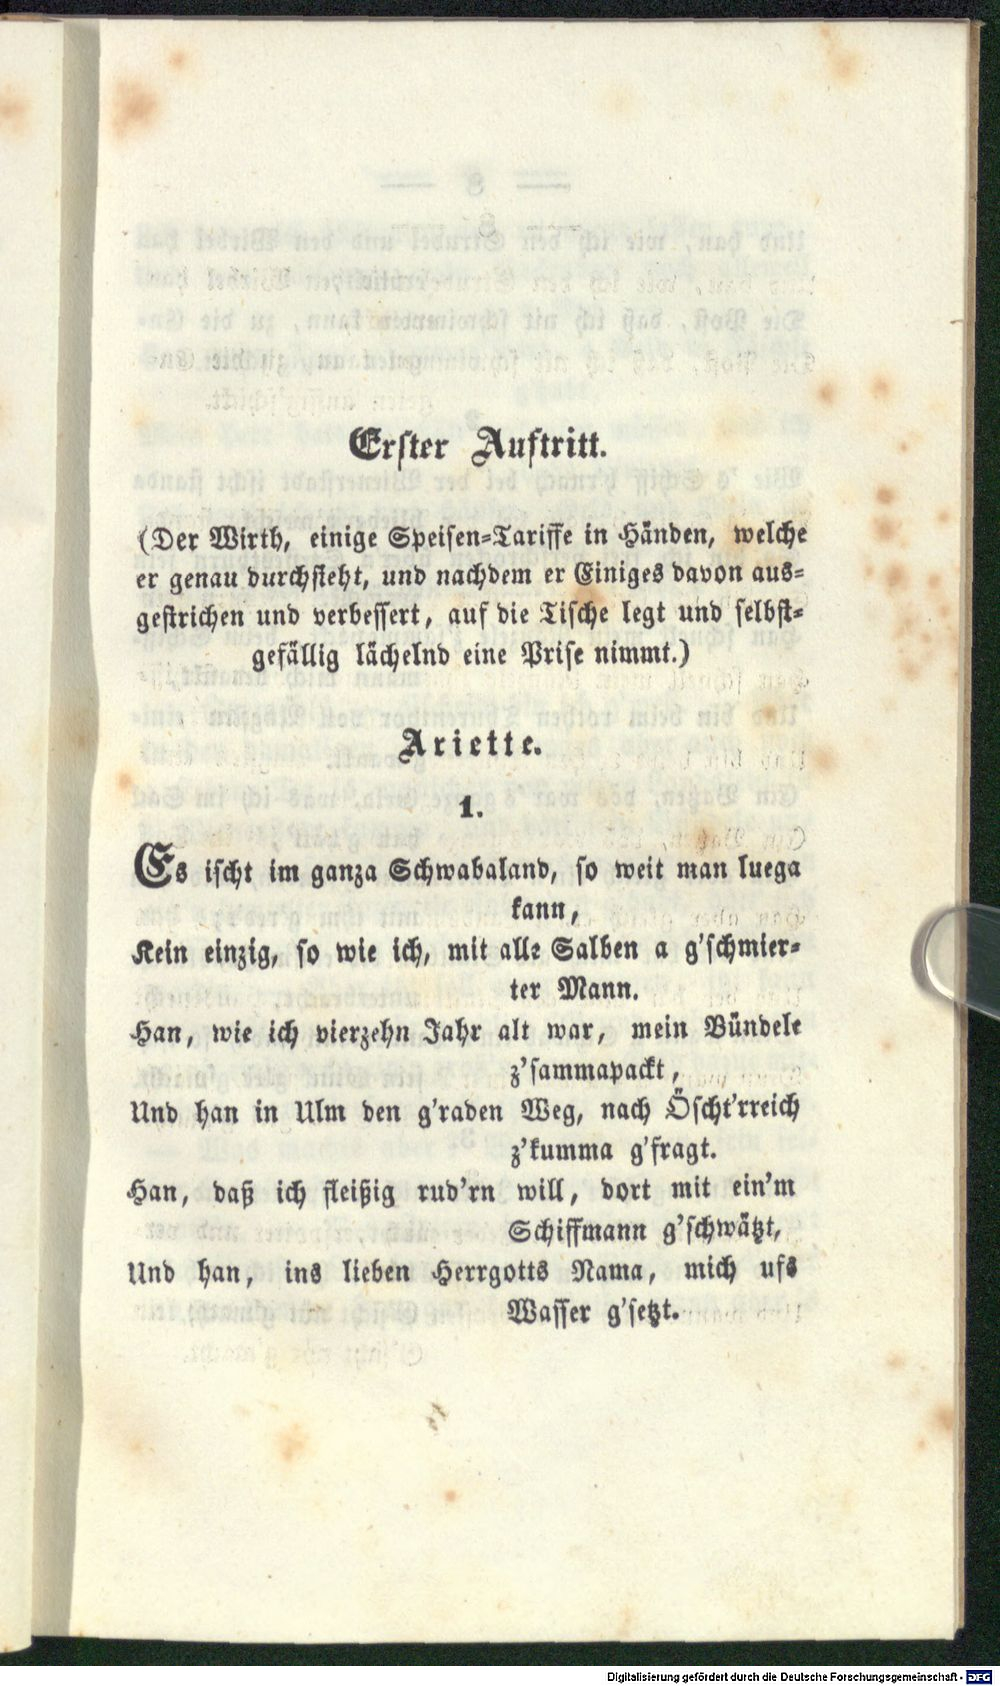 Erster Auftritt.
(Der Wirth, einige Speisen-Tariffe in Händen, welche
er genau durchsieht, und nachdem er Einiges davon aus-
gestrichen und verbessert, auf die Tische legt und selbst-
gefällig lächelnd eine Prise nimmt.)
Ariette.
1.
Es ischt im ganza Schwabaland, so weit man luega
kann,
Kein einzig, so wie ich, mit alle Salben a g'schmier-
ter Mann.
Han, wie ich vierzehn Jahr alt war, mein Bündele
z'sammapackt,
Und han in Ulm den g'raden Weg, nach Öscht'rreich
z'kumma g'fragt.
Han, daß ich fleißig rud'rn will, dort mit ein'm
Schiffmann g'schwätzt,
Und han, ins lieben Herrgotts Nama, mich ufs
Wasser g'setzt.
Digitalisierung gefördert durch die Deutsche Forschungsgemeinschaft - DFG